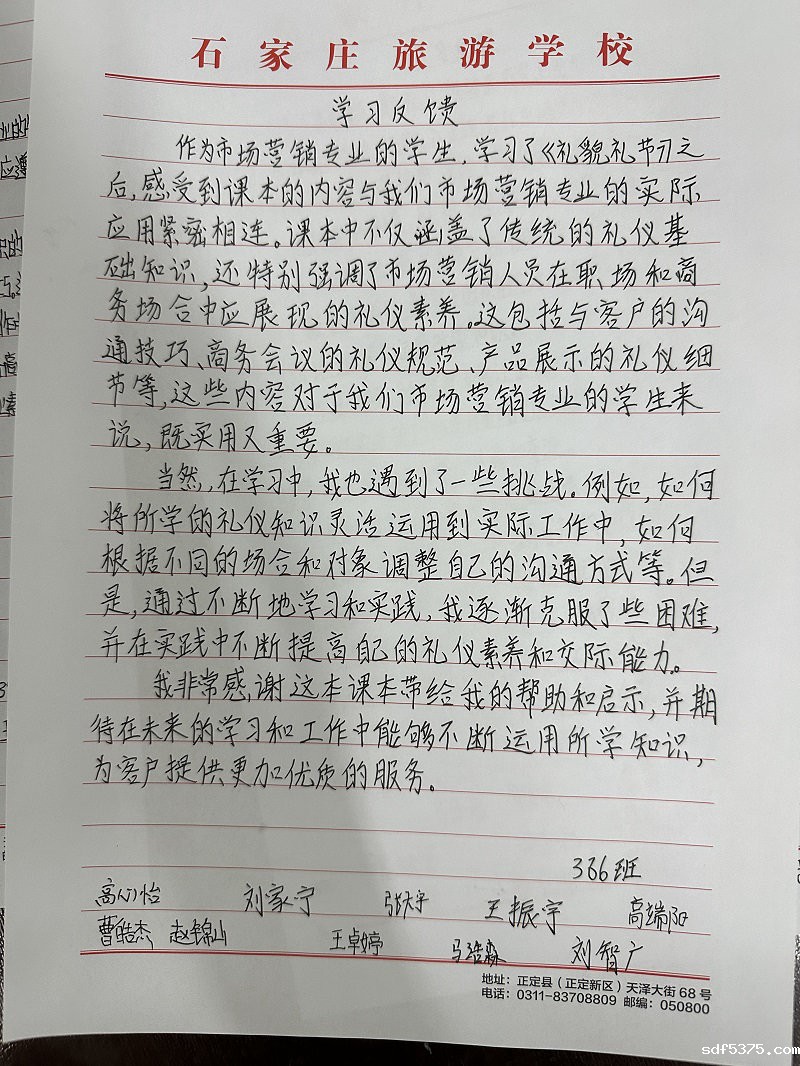 石家庄旅游学校
学习反馈
作为市场营销专业的学生,学习了《礼貌礼节》之
后,感受到课本的内容与我们市场营销专业的实际
应用紧密相连。课本中不仅涵盖了传统的礼仪基
础知识,还特别强调了市场营销人员在职场和商
务场合中应展现的礼仪素养。这包括与客户的沟
通技巧、商务会议的礼仪规范、产品展示的礼仪细
节等,这些内容对于我们市场营销专业的学生来
说,既实用又重要。
当然,在学习中,我也遇到了一些挑战。例如,如何
将所学的礼仪知识灵活运用到实际工作中,如何
根据不同的场合和对象调整自己的沟通方式等。但
是,通过不断地学习和实践,我逐渐克服了些困难,
并在实践中不断提高自己的礼仪素养和交际能力。
我非常感谢这本课本带给我的帮助和启示,并期
待在未来的学习和工作中能够不断运用所学知识,
为客户提供更加优质的服务。
366班
高心怡 刘家宁 王振宇 高端阳
曹皓杰 赵锦山 王卓婷 马浩淼 刘智广
地址:正定县(正定新区)天泽大街68号
电话:0311-83708809 邮编:050800
sdf5375.com